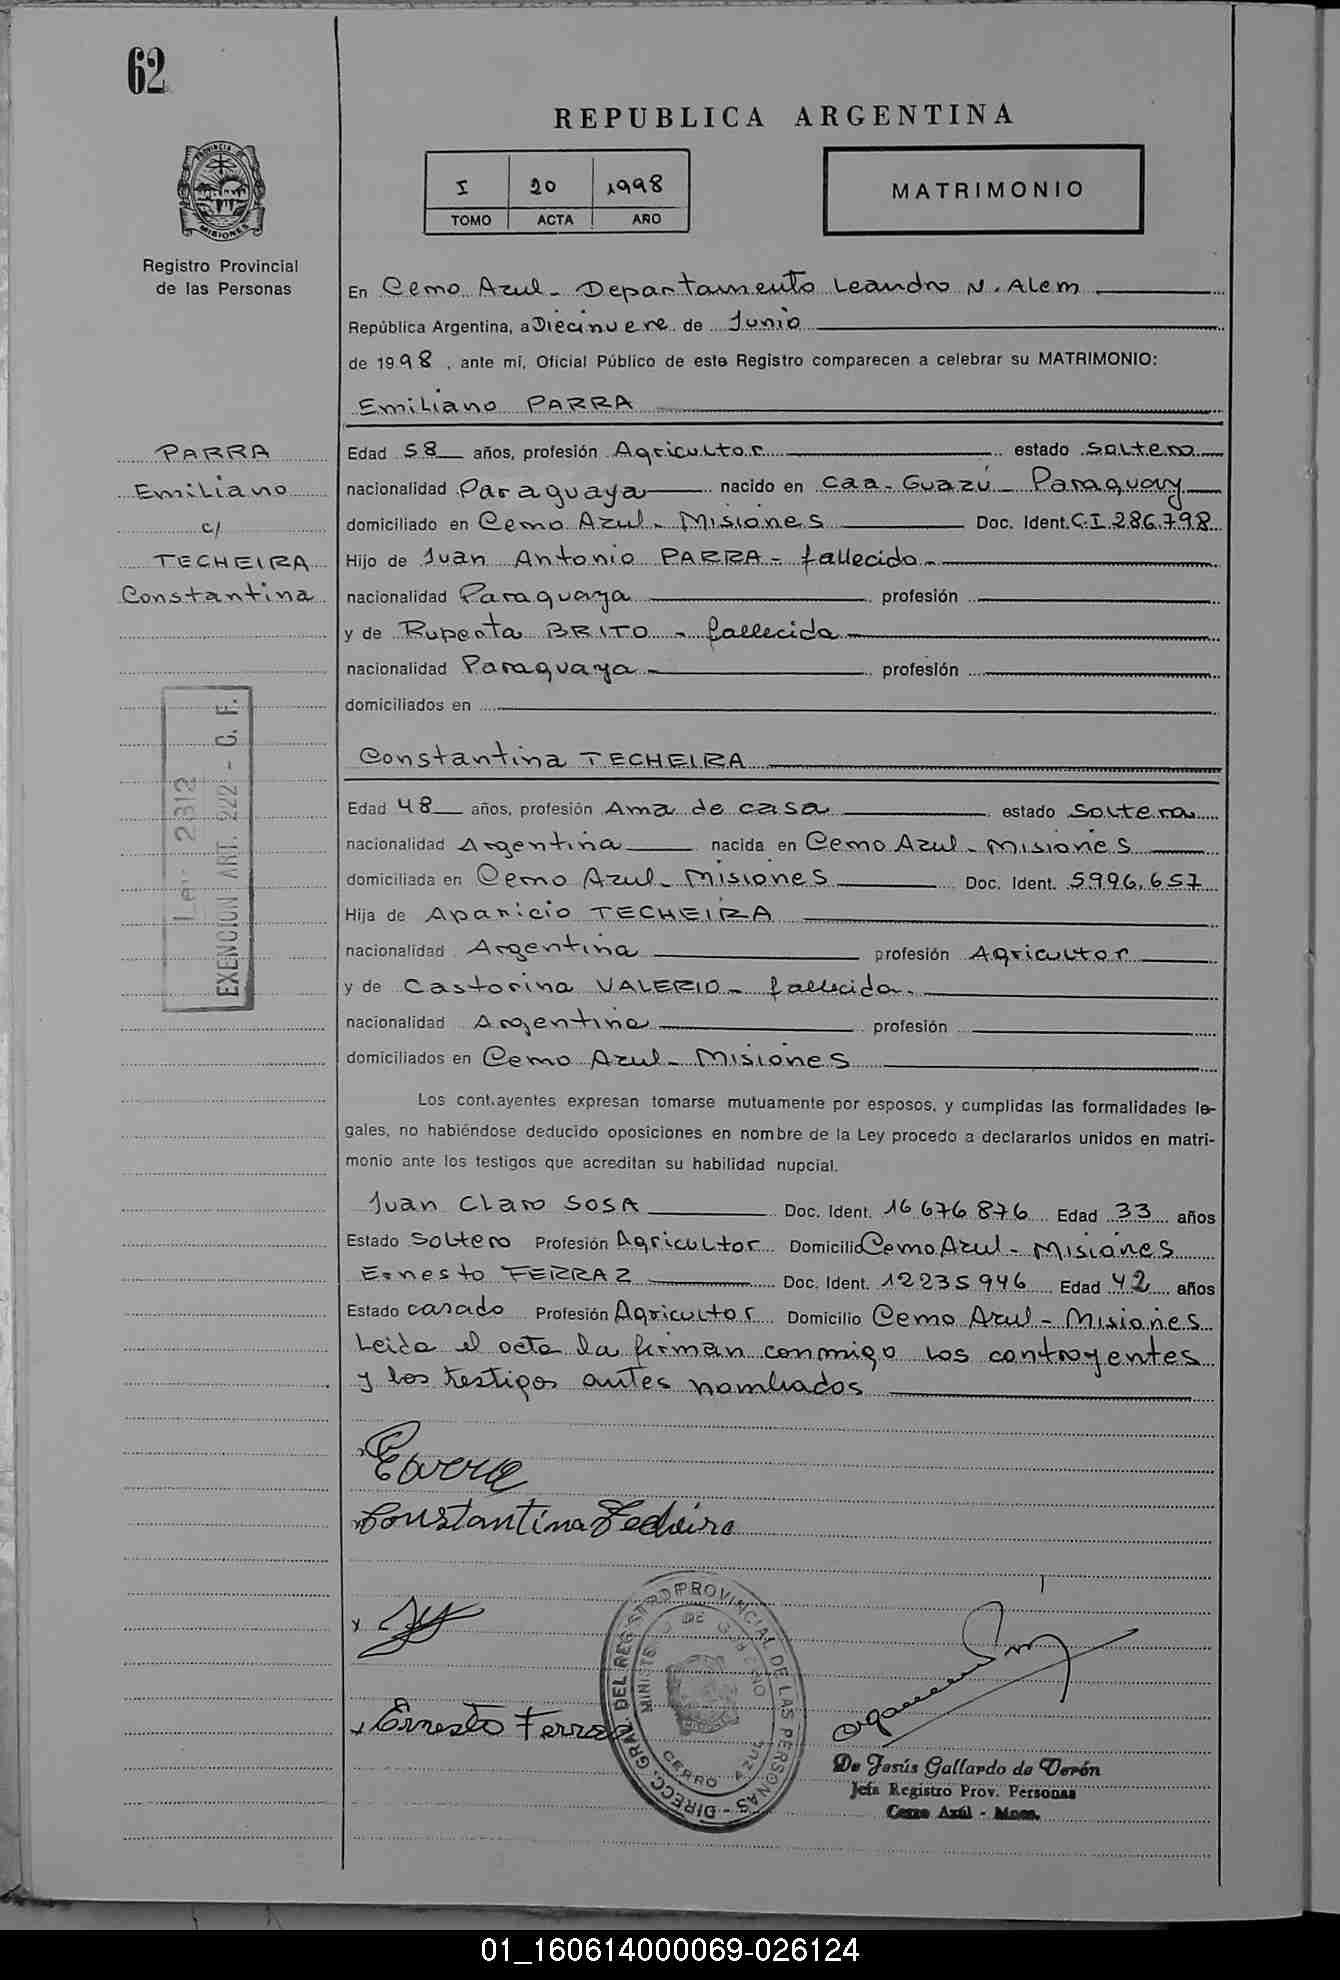 62
REPUBLICA ARGENTINA
I 20 1998
TOMO ACTA AÑO
MATRIMONIO
PROVINCIA DE
MISIONES
Registro Provincial
de las Personas
En Cerro Azul - Departamento Leandro N. Alem
República Argentina, a Diecinueve de Junio
de 1998, ante mí, Oficial Público de este Registro comparecen a celebrar su MATRIMONIO:
Emiliano PARRA
PARRA
Emiliano
c/
TECHEIRA
Constantina
Edad 58 años, profesión Agricultor estado Soltero
nacionalidad Paraguaya nacido en Caa-Guazú - Paraguay
domiciliado en Cerro Azul - Misiones Doc. Ident. C.I. 286.798
Hijo de Juan Antonio PARRA - fallecido -
nacionalidad Paraguaya profesión
y de Ruperta BRITO - fallecida -
nacionalidad Paraguaya - profesión
domiciliados en
Ley 2312
EXENCION ART. 222 - C. F.
Constantina TECHEIRA
Edad 48 años, profesión Ama de casa estado Soltera
nacionalidad Argentina nacida en Cerro Azul - Misiones
domiciliada en Cerro Azul - Misiones Doc. Ident. 5.996.657
Hija de Aparicio TECHEIRA
nacionalidad Argentina profesión Agricultor
y de Castorina VALERIO - fallecida.
nacionalidad Argentina profesión
domiciliados en Cerro Azul - Misiones
Los cont.ayentes expresan tomarse mutuamente por esposos, y cumplidas las formalidades le-
gales, no habiéndose deducido oposiciones en nombre de la Ley procedo a declararlos unidos en matri-
monio ante los testigos que acreditan su habilidad nupcial.
Juan Claro SOSA Doc. Ident. 16 676 876 Edad 33 años
Estado Soltero Profesión Agricultor Domicilio Cerro Azul - Misiones
Ernesto FERRAZ Doc. Ident. 12235946 Edad 42 años
Estado casado Profesión Agricultor Domicilio Cerro Azul - Misiones
Leida el acta la firman conmigo los contrayentes
y los testigos antes nombrados
Constantina Techeira
Ernesto Ferraz
DIRECC. GRAL. DEL REGISTRO PROVINCIAL DE LAS PERSONAS -
MINISTERIO DE GOBIERNO
CERRO AZUL
De Jesús Gallardo de Verón
Jefa Registro Prov. Personas
Cerro Azúl - Mnes.
01_160614000069-026124